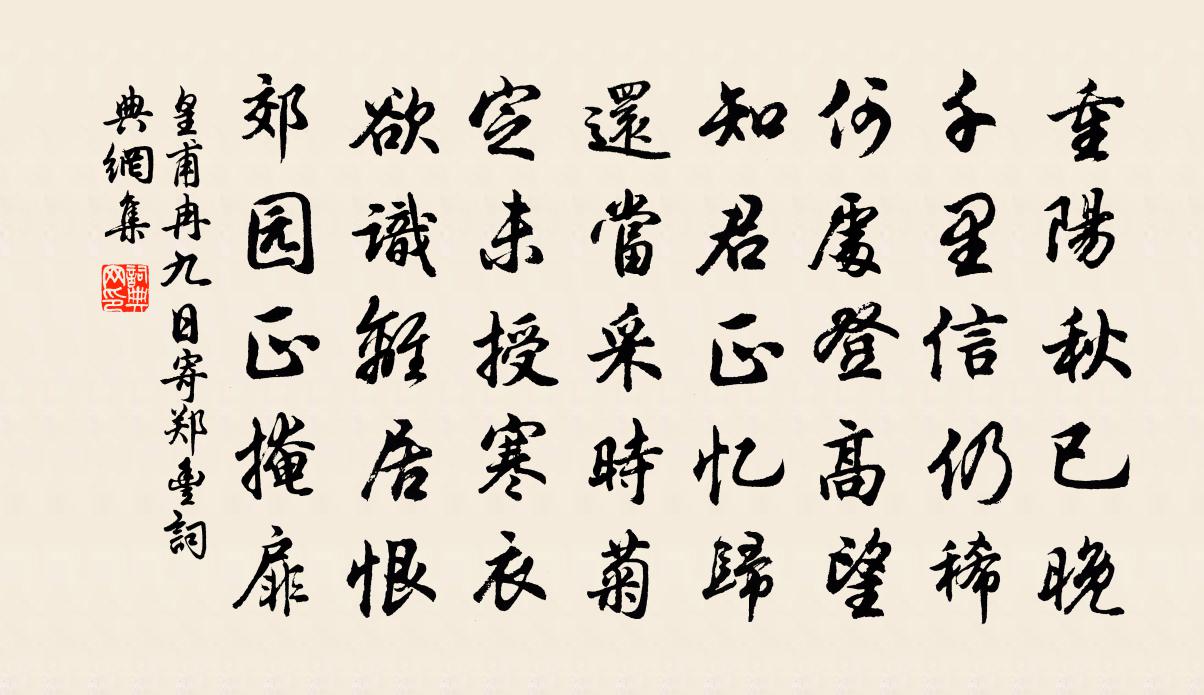 重陽秋已晚
千里信仍稀
何處登高望
知君正忆歸
還當采時菊
定未授寒衣
欲識離居恨
郊园正掩扉
皇甫冉九日寄郑豐詞
典網集
詞典
网印